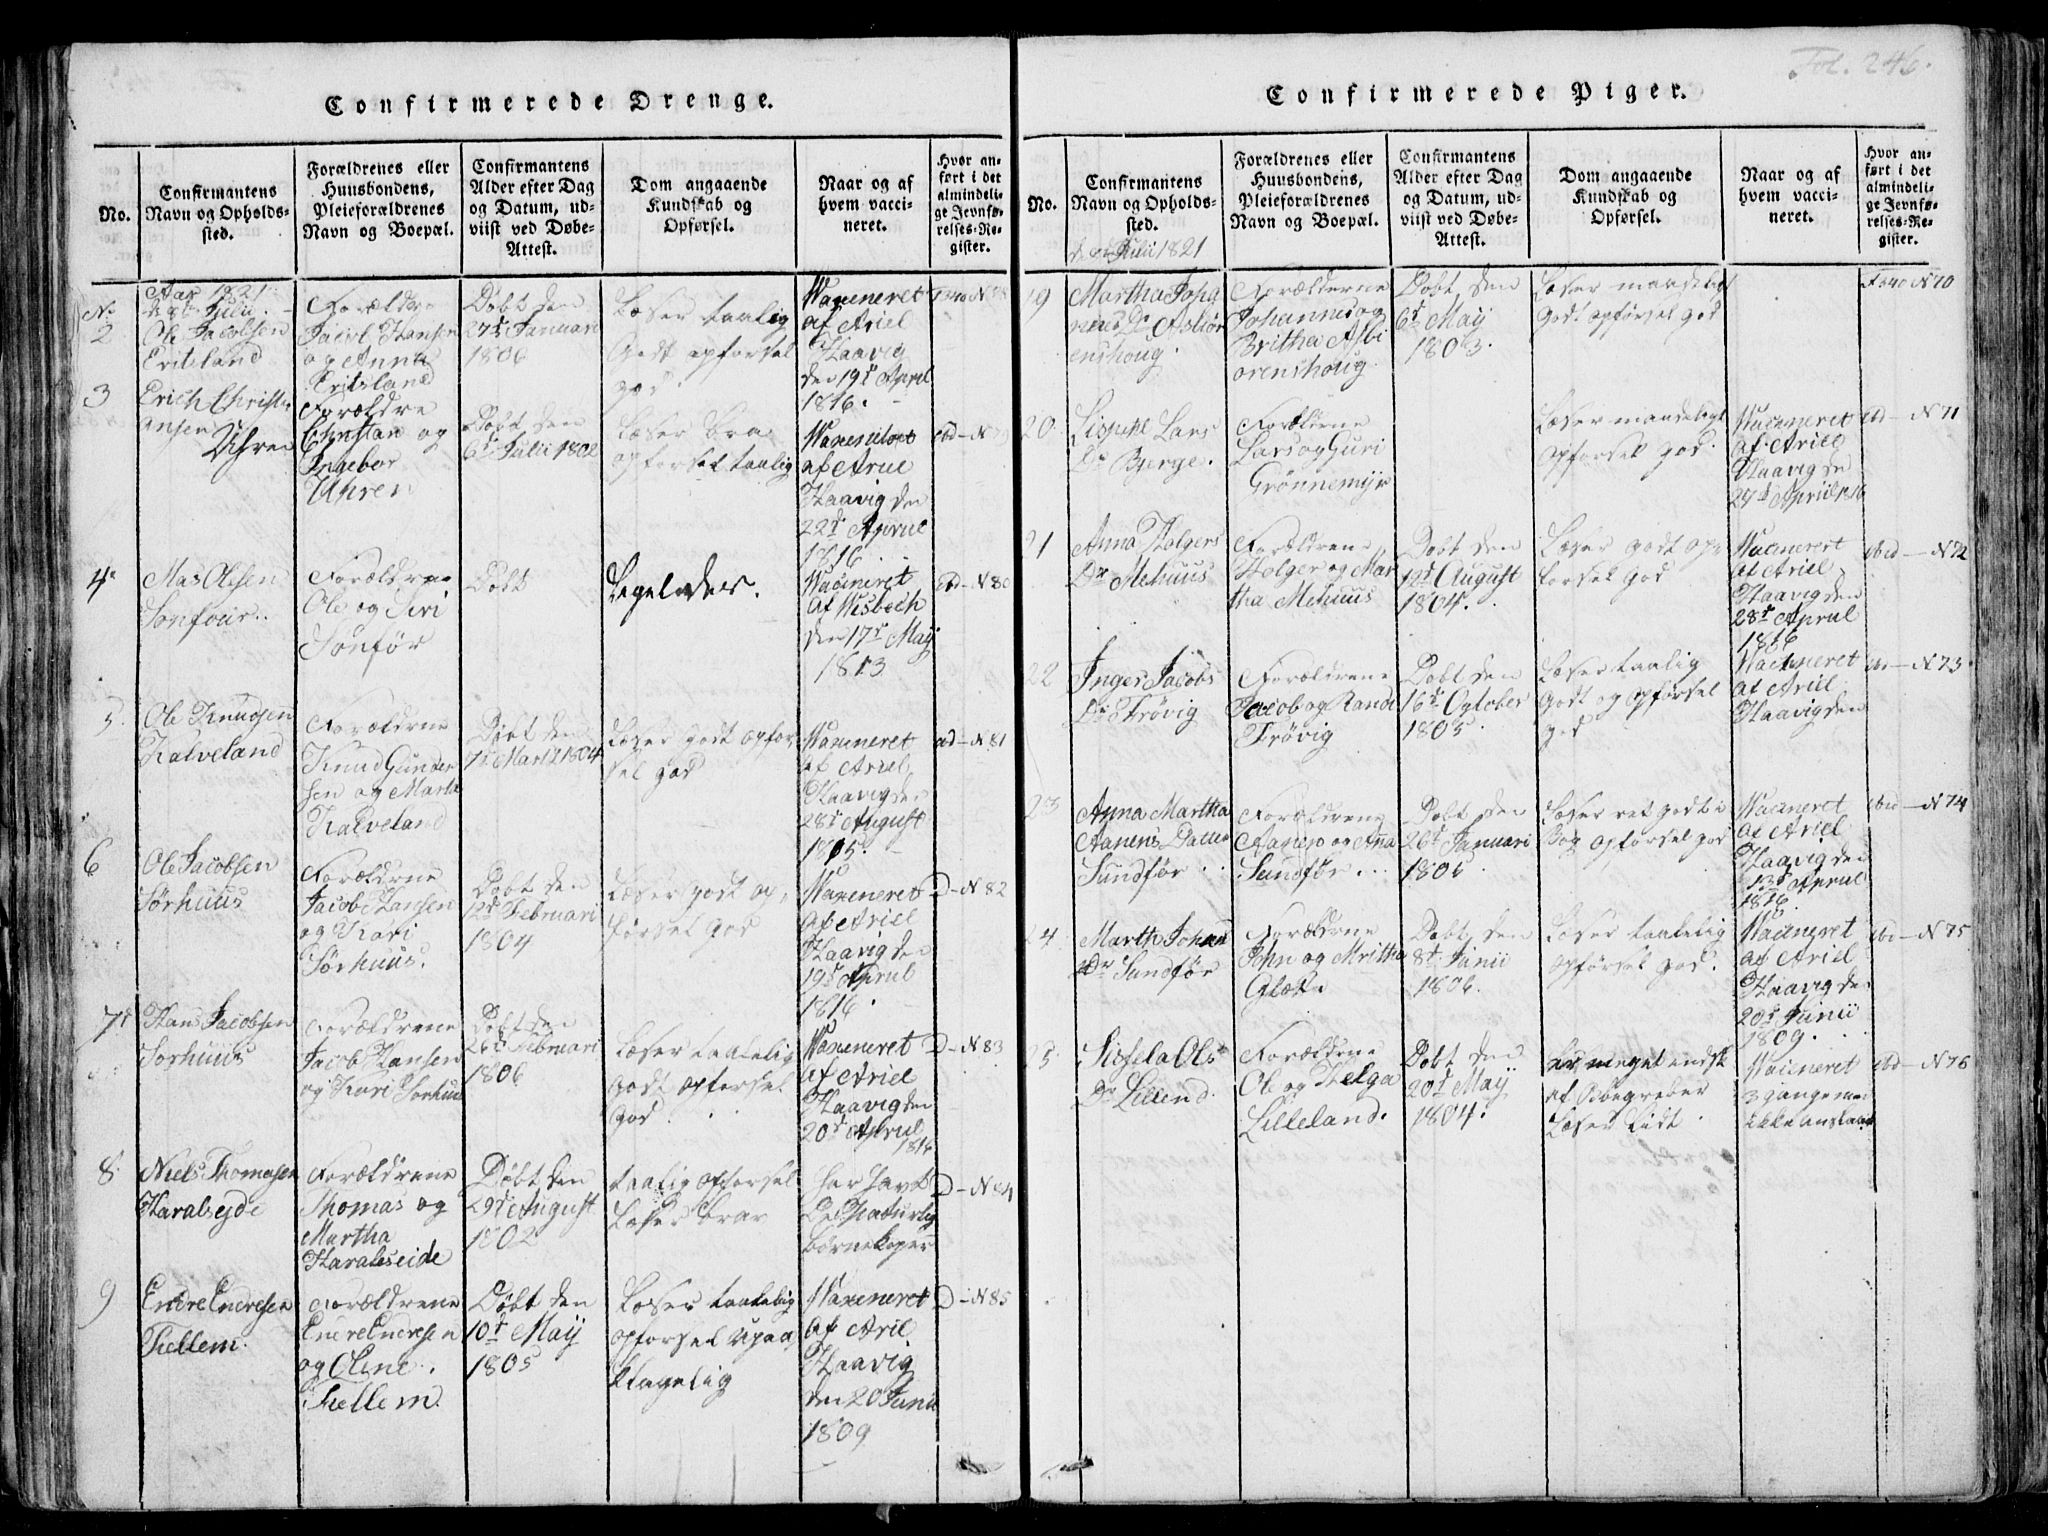 Fol. 246.
Confirmerede Drenge.
No.
Confirmantens
Navn og Opholds-
sted.
Forældrenes eller
Huusbondens,
Pleieforældrenes
Navn og Boepæl.
Confirmantens
Alder efter Dag
og Datum, ud-
viist ved Døbe-
Attest.
Dom angaaende
Kundskab og
Opførsel.
Naar og af
hvem vacci-
neret.
Hvor an-
ført i det
almindeli-
ge Jevnfø-
relses-Re-
gister.
Aar 1821
Juli
2
Ole Jacobsen
Eritsland
Forældre
Jacob Hansen
og Anna
Eritsland
Døbt den
27d Januari
1806
Læser taalig
Godt opførsel
god.
Waxeneret
af Ariel
Haavig
den 19d April
1816.
3
Erich Christi
ansen
Uhren
Forældre
Christan og
Ingebor
Uhren
Døbt den
6d Julii 1802
Læser bra
opførsel taalig
Waxeneret
af Ariel
Haavig den
22d Aprul
1816.
4
Mas Olesen
Sonfour.
Forældre
Ole og Siri
Sønfør
Døbt
Waceneret
af Wisbech
den 17d Maij
1813
ebd - N 80
5.
Ole Knudsen
Kalveland
Forældrne
Knud Gunder
sen og Marta
Kalveland
Døbt den
7d Marti 1804
Læser godt opfør,
sel god
Waxeneret
af Ariel
Haavig den
28d August
1815.
N 81
6
Ole Jacobsen
Sørhuus
Forældrne
Jacob Hansen
og Kari
Sørhuus.
Døbt den
12d Februari
1804
Læser godt op,
førsel god
Waxeneret
af Ariel
Haavig den
19d Aprul
1816.
D - N 82
7d
Hans Jacobsen
Sorhuus
Forældrene
Jacob Hansen
og Kari Sorhuus
Døbt den
26d Februari
1806
Læser taatelig
godt opførsel
god.
Waxeneret
af Ariel
Haavig den
20d Aprul
1816
D - N 83
8.
Niels Thomasen
Haralsejde
Forældrene
Thomas og
Martha
Haralsseide
Døbt den
29d August
1802
taalig opførsel
Læser brav
har havt
De Naturlig
børnekoper
D - N 84
9
Endre Endresen
Tiellem.
Forældrene
Endre Endresen
og Olene.
Tiellem.
Døbt den
10d Maij
1805
Læser taatelig
opførsel upaa
klagelig
Waxeneret
af Aril
Haavig
den 20 Junii
1809
D - N 85
Confirmerede Piger.
No.
Confirmantens
Navn og Opholds-
sted.
Forældrenes eller
Huusbondens,
Pleieforældrenes
Navn og Boepæl.
Confirmantens
Alder efter Dag
og Datum, ud-
viist ved Døbe-
Attest.
Dom angaaende
Kundskab og
Opførsel.
Naar og af
hvem vacci-
neret.
Hvor an-
ført i det
almindeli-
ge Jevnfø-
relses-Re-
gister.
Julii 1821
19
Martha Joha
nnes Dr Asbiør
enshoug.
Forælderne
Johannes og
Britha Asbi
orenshoug.
Døbt den
6d May
1803.
Læser maadeligt
Godt opførsel god
N 70
20.
Lars
Dr Bjerge.
Forældrne
Lars og Guri
Grønnemyr
Læser maadeligt
opførsel god.
Waceneret
af Ariel
Haavig de
27d Apriil 1816
N 71
21
Anna Holgers
Dr Mehuus
Forældrene
Holger og Mar
tha Mehuus
Døbt den
12d August
1804.
Læser godt op,
førsel god
Waceneret
af Ariel
Haavig den
28d Aprul
1816
N 72
22
Inger Jacobs
Dr Trøvig
Forældrene
Jacob og Randi
Trøvig
Døbt den
16d October
1805.
Læser taalig
Godt og opførsel
god
Waceneret
af Ariel
Haavig den
N 73
23
Anna Martha
Aanens Datter
Sundfør
Forældrene
Aanen og Ana
Sundfør
Døbt den
26d Januari
1806
Læser ret godt i
Bog opførsel god
Waceneret
af Ariel
Haavig den
13d Aprul
1816.
N 74
24.
Marth Johan
Dr Sundfør
Forældrne
John og Mritha
Døbt den
8d Junii
1806.
Læser taatelig
opførsel god.
Waceneret
af Ariel
Haavig de
20d Junii
1809.
N 75
25.
Sisela Ols
Dr Lilend.
Forældrne
Ole og Helga
Lilleland.
Døbt den
20d Maij
1804.
er meget indsk
af Bbegreber
Læser Lidt
Waceneret
3 gange men
ikke anslaaet
ebd - N 76